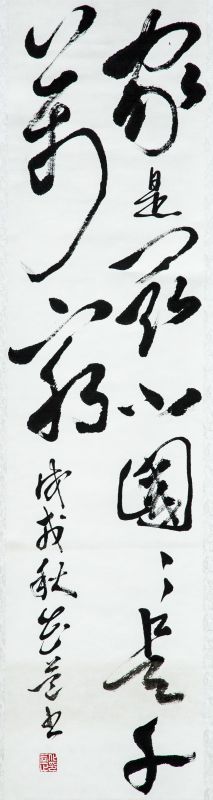 家是最小國〻是千
萬家 戊戌秋 书